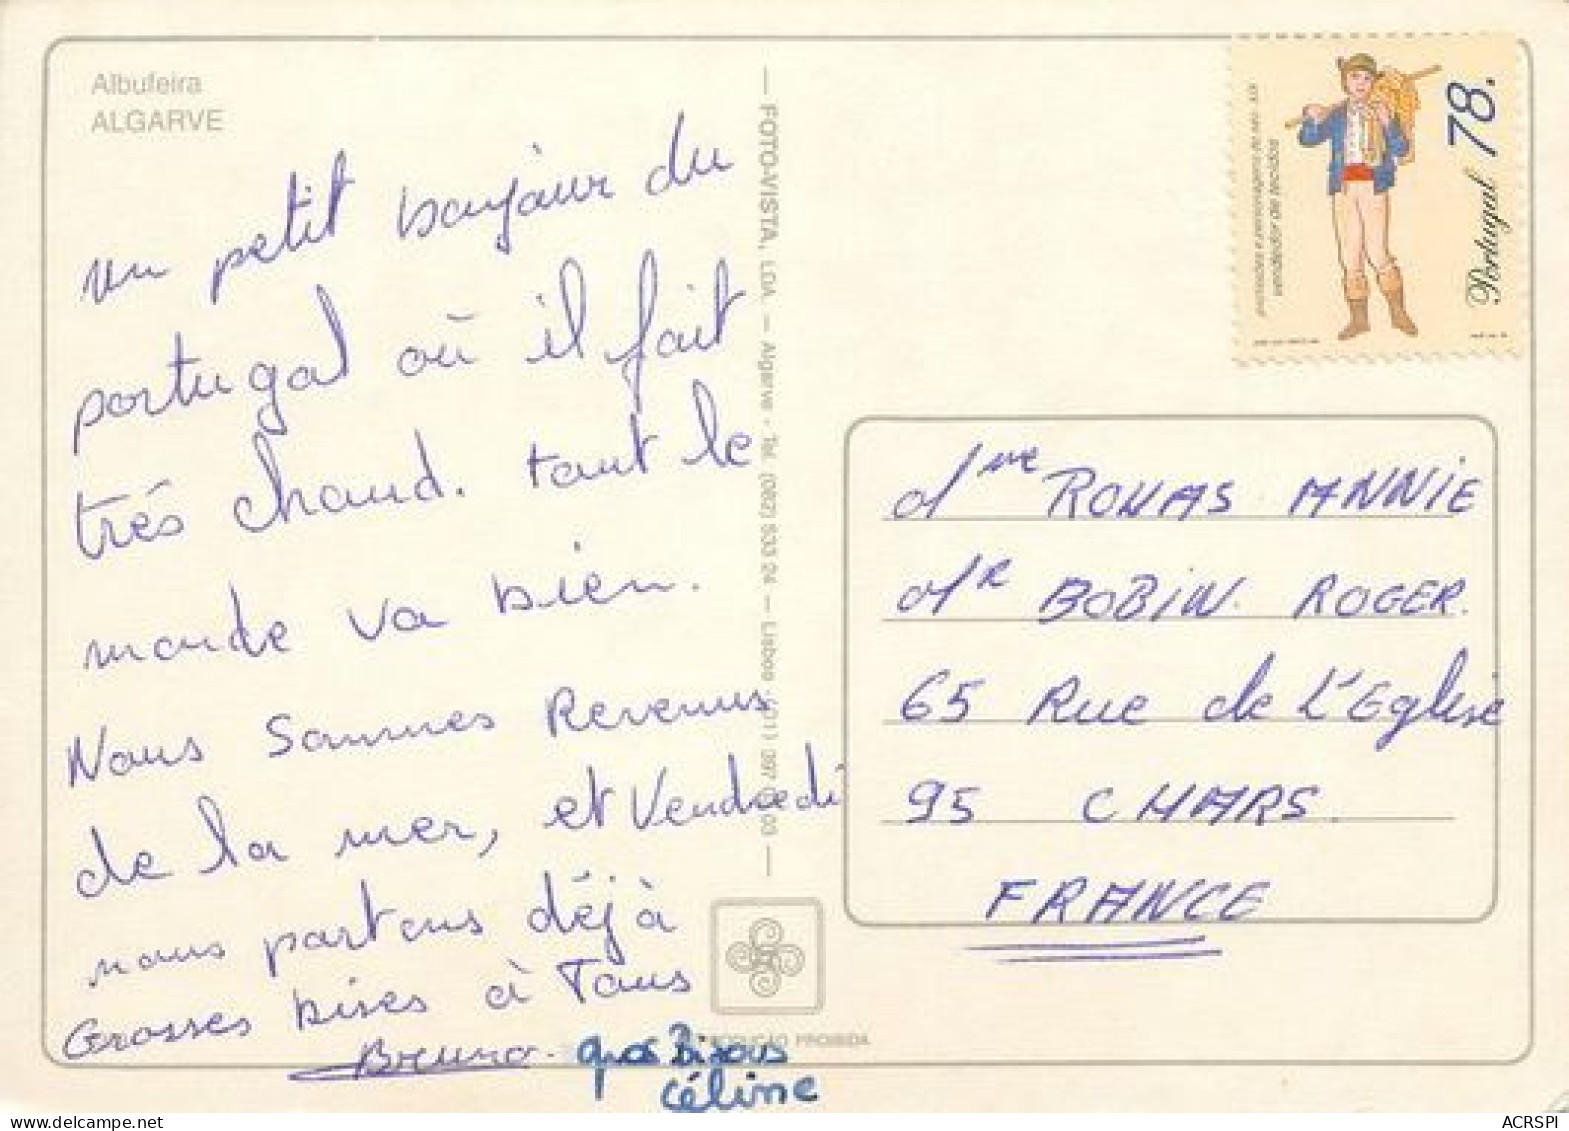 Albufeira
ALGARVE
un petit bonjour du
portugal où il fait
trés chaud. tout le
monde va bien.
Nous sommes Revenus
de la mer, et Vendredi
nous partons déjà
Grosses bises à Tous
Bruno.
gros Bisous
Céline
— FOTO-VISTA, LDA. — Algarve - Tel. (082) 533 24 — Lisboa
PROIBIDA
profissões e personagens do séc. XIX
vendedor de tecidos
Portugal 78.
Mme ROUAS ANNIE
Mr BOBIN. ROGER.
65 Rue de L'Eglise
95 CHARS.
FRANCE
ACRSPI